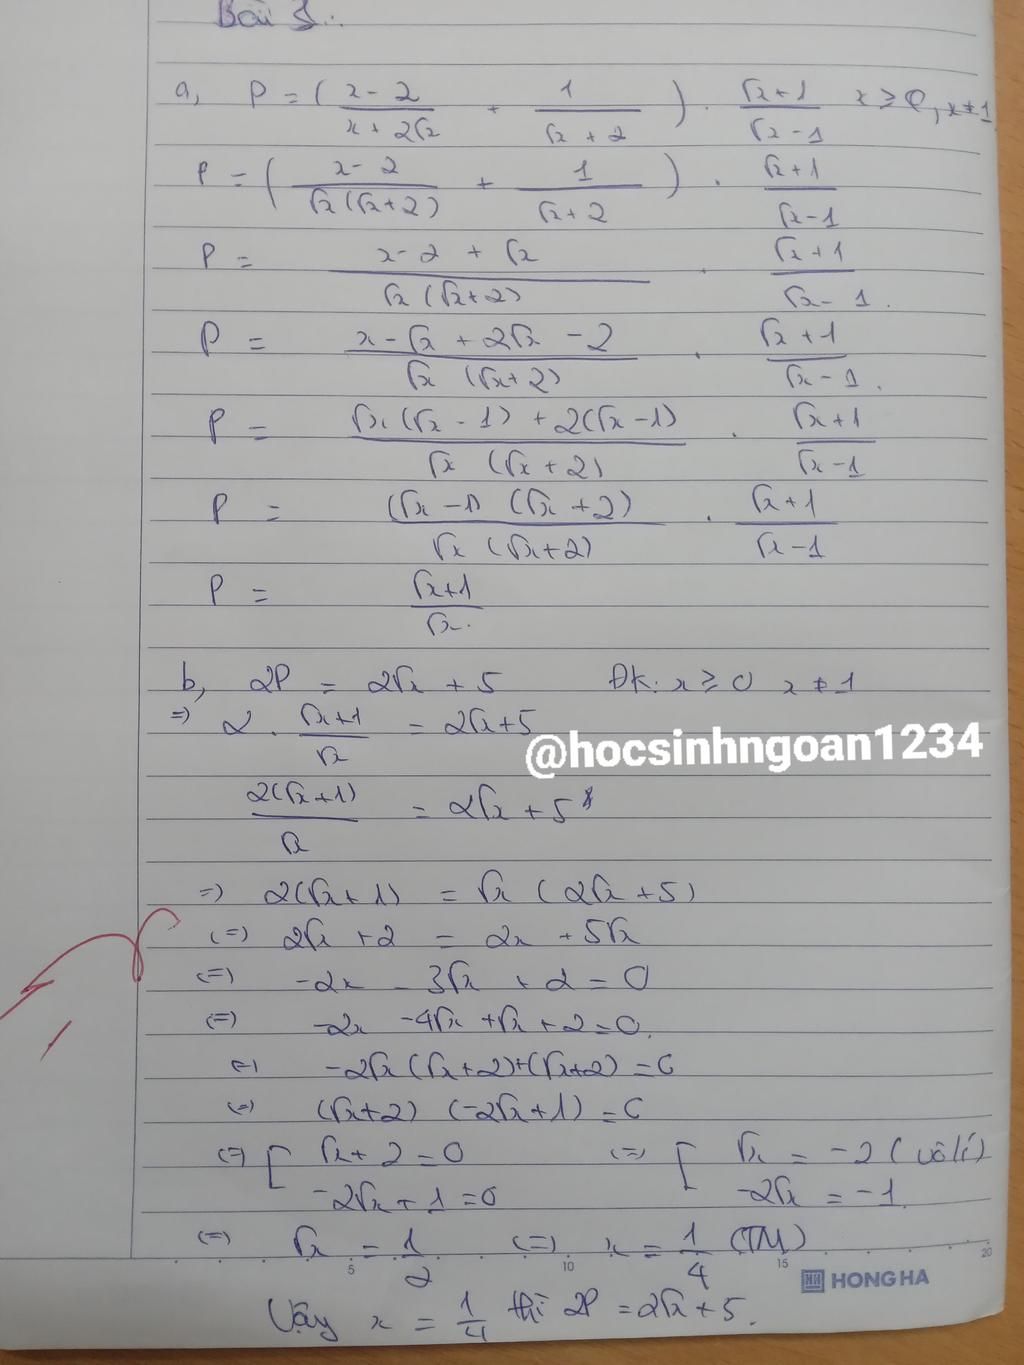 Bài 1:
a, P = ( x - 2 / x + 2√x + 1 / √x + 2 ) . √x + 1 / √x - 1 x ≥ 0, x ≠ 1
P = ( x - 2 / √x (√x + 2) + 1 / √x + 2 ) . √x + 1 / √x - 1
P = x - 2 + √x / √x (√x + 2) . √x + 1 / √x - 1 .
P = x - √x + 2√x - 2 / √x (√x + 2) . √x + 1 / √x - 1 .
P = √x (√x - 1) + 2(√x - 1) / √x (√x + 2) . √x + 1 / √x - 1
P = (√x - 1) (√x + 2) / √x (√x + 2) . √x + 1 / √x - 1
P = √x + 1 / √x .
b, 2P = 2√x + 5 ĐK: x ≥ 0 x ≠ 1
=> 2 . √x + 1 / √x = 2√x + 5
@hocsinhngoan1234
2(√x + 1) / √x = 2√x + 5
=> 2(√x + 1) = √x (2√x + 5)
(=) 2√x + 2 = 2x + 5√x
(=) -2x - 3√x + 2 = 0
(=) -2x - 4√x + √x + 2 = 0.
(=) -2√x (√x + 2) + (√x + 2) = 0
(=) (√x + 2) (-2√x + 1) = 0
(=) [ √x + 2 = 0 (=) [ √x = -2 (vô lí)
-2√x + 1 = 0 -2√x = -1
(=) √x = 1/2 (=) x = 1/4 (TM)
5 10 15 20
HONG HA
Vậy x = 1/4 thì 2P = 2√x + 5.